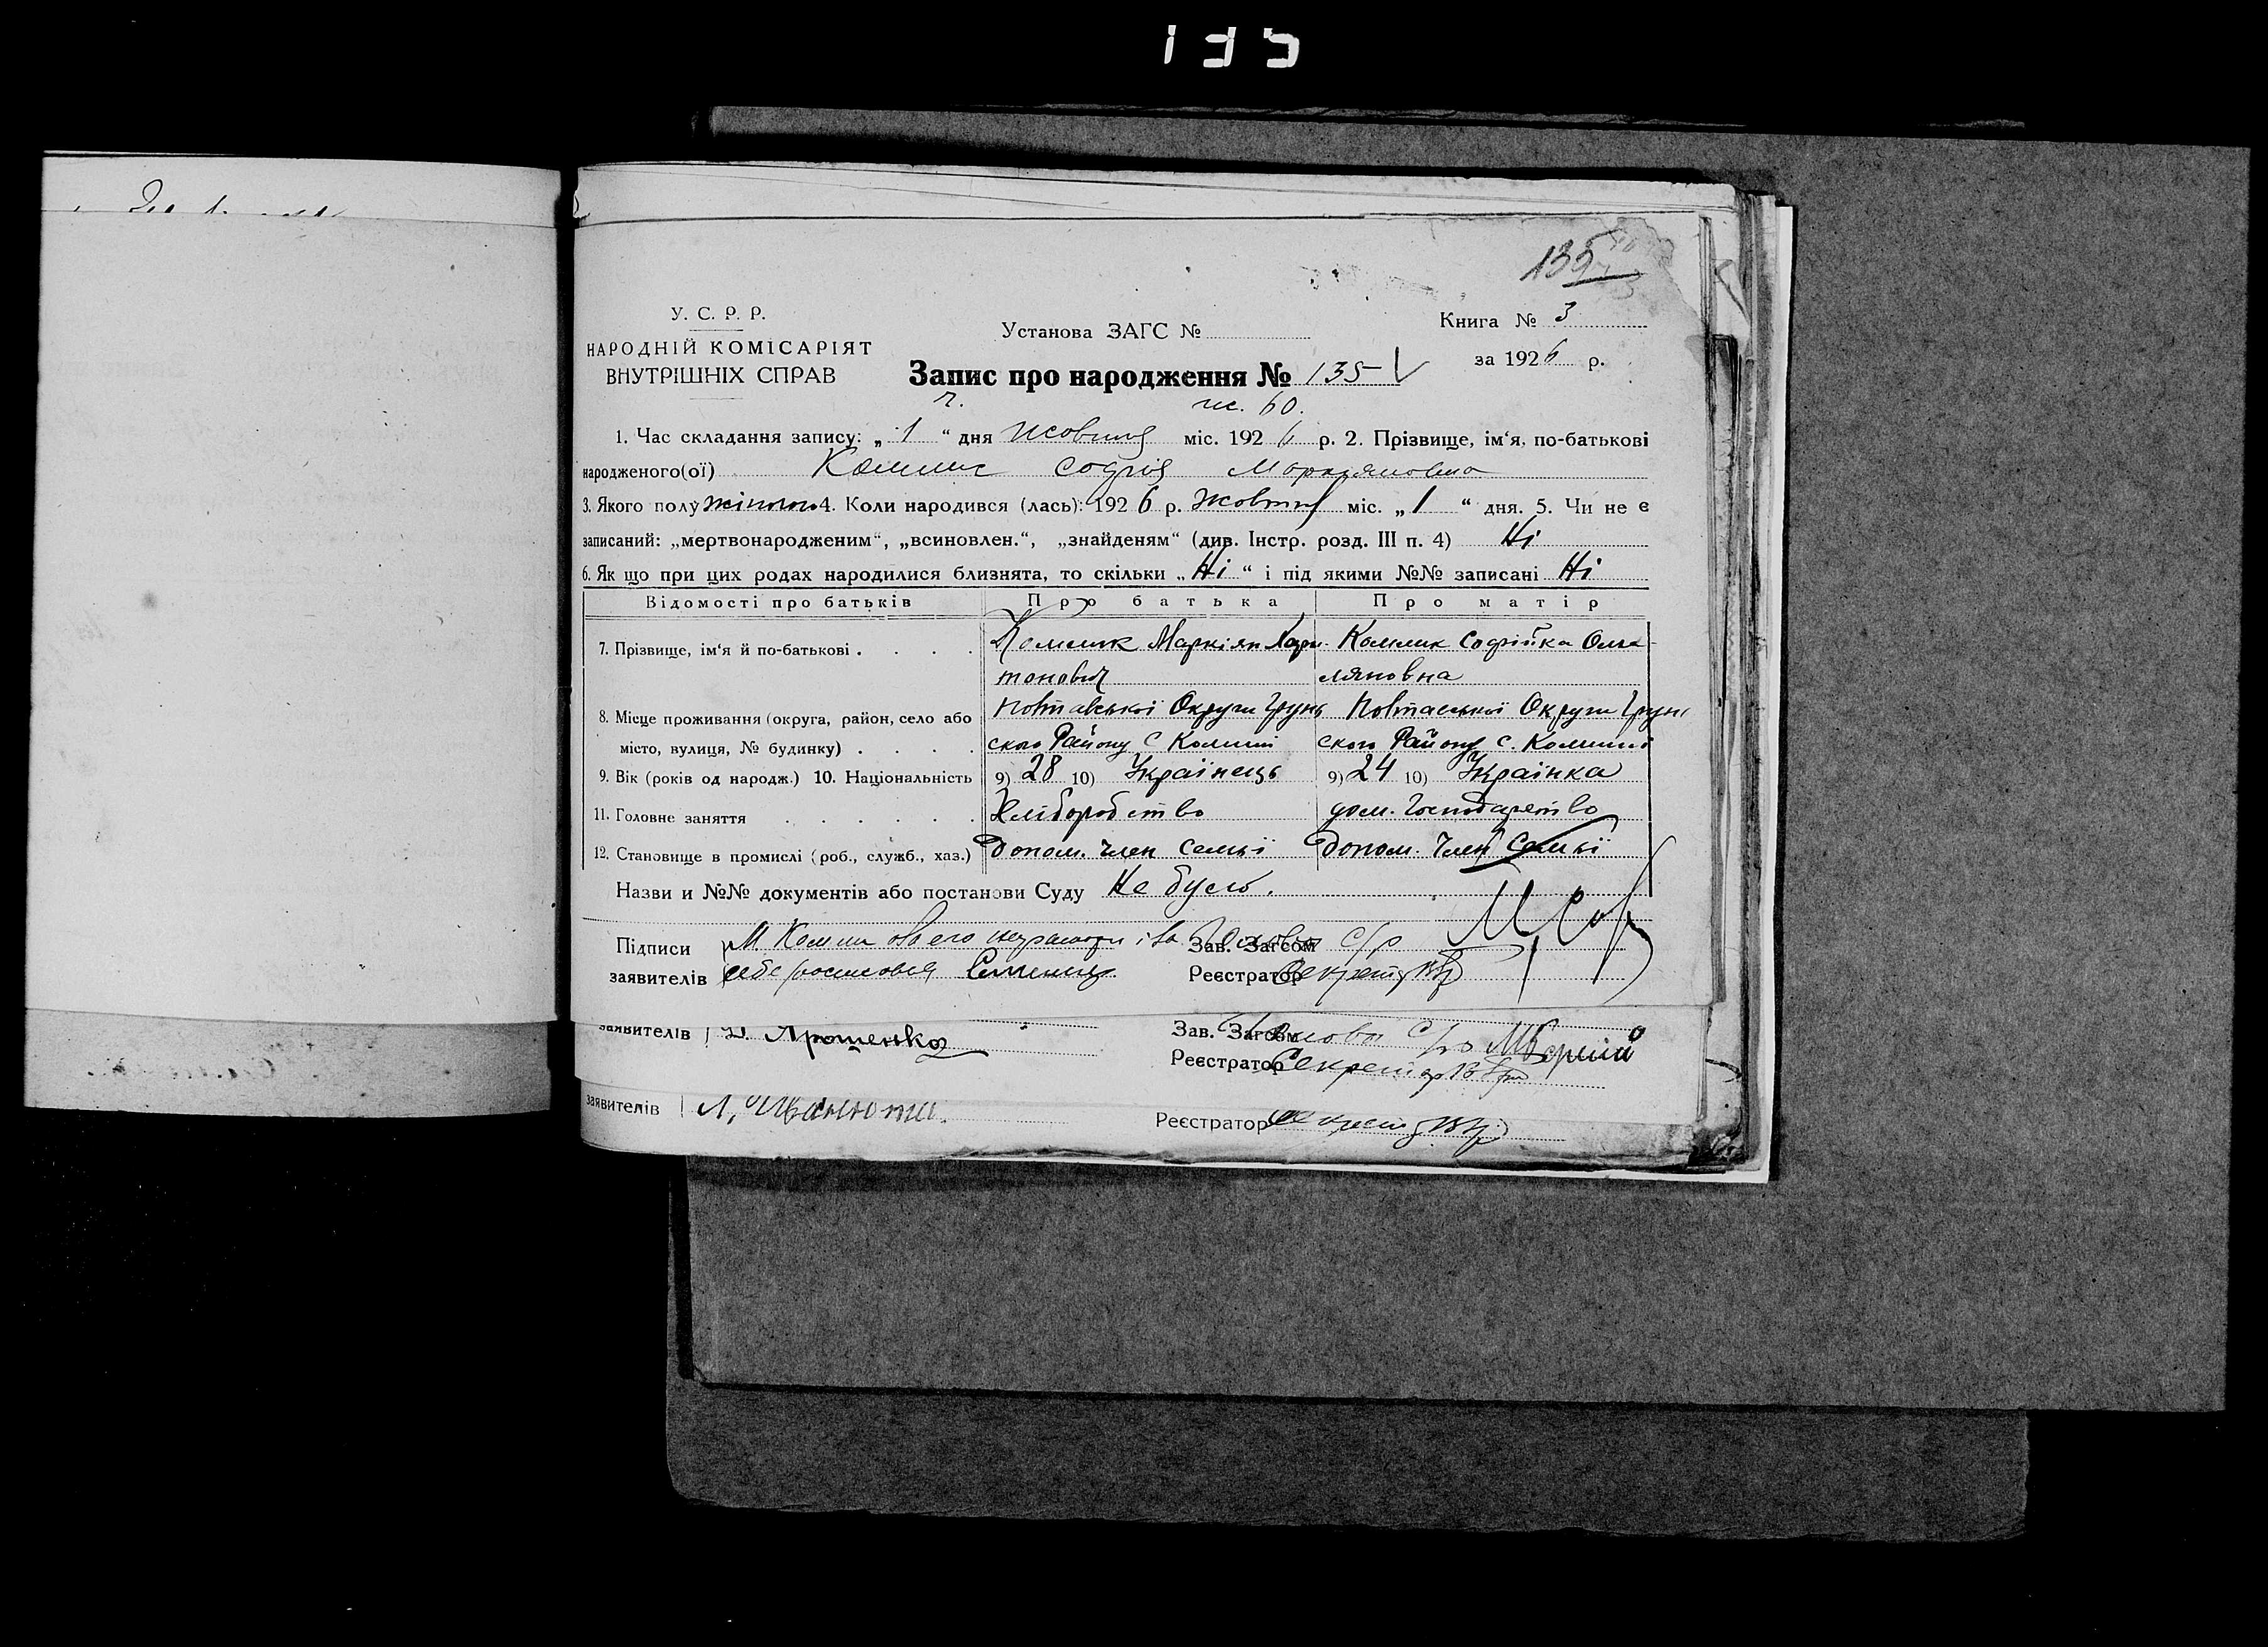 135
135
У. С. Р. Р.
НАРОДНІЙ КОМІСАРІЯТ
ВНУТРІШНІХ СПРАВ
Установа ЗАГС №
Книга № 3
за 1926 р.
Запис про народження № 135
ч. жс. 60.
1. Час складання запису: „ 1 “ дня Жовтня міс. 1926 р. 2. Прізвище, ім‘я, по-батькові
народженого(ої) Комлик Софія Маркіяновна
3. Якого полу жіночого 4. Коли народився (лась): 1926 р. Жовтня міс. „ 1 “ дня. 5. Чи не є
записаний: „мертвонародженим“, „всиновлен.“, „знайденям“ (див. Інстр. розд. III п. 4) Ні
6. Як що при цих родах народилися близнята, то скільки „ Ні “ і під якими №№ записані Ні
Відомості про батьків Про батька Про матір
7. Прізвище, ім‘я й по-батькові . . . . Комлик Маркіян Хари- Комлик Софійка Оме-
тонович ляновна
8. Місце проживання (округа, район, село або Повтавської Округи Грунь Повтавської Округи Грунь
місто, вулиця, № будинку) . . . . ского Району С Комиші ского Району С. Комиші
9. Вік (років од народж.) 10. Національність 9) 28 10) Українець 9) 24 10) Українка
11. Головне заняття . . . . . . Хліборобство дом. Господарство
12. Становище в промислі (роб., служб., хаз.) Допом. Член Семьї Допом. Член Семьї
Назви и №№ документів або постанови Суду Не було.
Підписи М. Комлик Зав. Загсом С/р
заявителів себе росписовся Реєстратор Секретар
заявителів Д. Ярошенко Зав. Загсом Голова С/р
Реєстратор Секретар
заявителів Л. Іванюта. Реєстратор Секретар